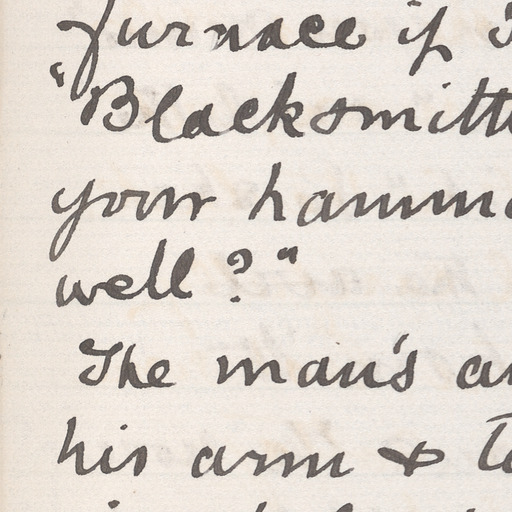 furnace if
"Blacksmith
your hamm
well?"
The man's a
his arm & t